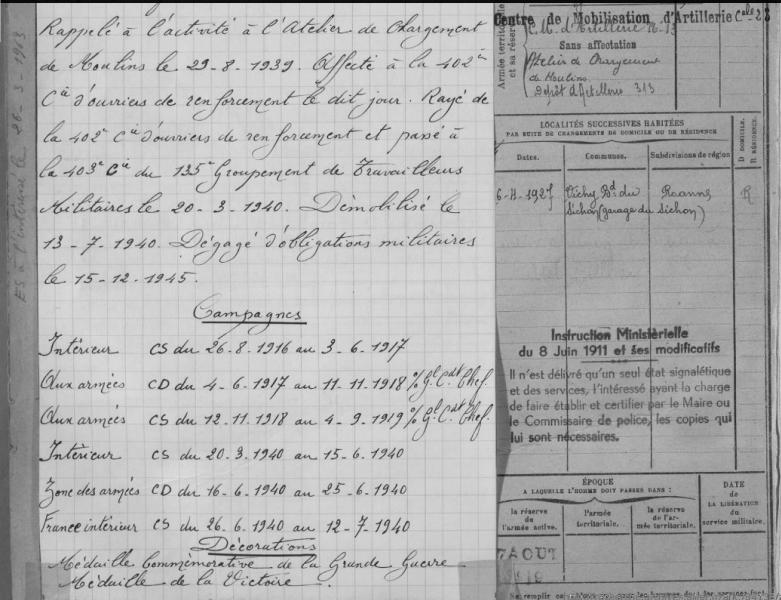 Rappelé à l'activité à l'Atelier de Chargement
de Moulins le 29-8-1939. Affecté à la 402e
Cie d'ouvriers de renforcement le dit jour. Rayé de
la 402e Cie d'ouvriers de renforcement et passé à
la 403e Cie du 135e Groupement de Travailleurs
Militaires le 20-3-1940. Démobilisé le
13-7-1940. Dégagé d'obligations militaires
le 15-12-1945.
Campagnes
Intérieur CS du 26.8.1916 au 3-6-1917
Aux armées CD du 4-6-1917 au 11-11-1918 % Gl Cdt Chef.
Aux armées CS du 12.11.1918 au 4-9-1919 % Gl Cdt Chef.
Intérieur CS du 20-3-1940 au 15-6-1940
Zone des armées CD du 16-6-1940 au 25-6-1940
France intérieur CS du 26.6.1940 au 12-7-1940
Décorations
Médaille Commémorative de la Grande Guerre
Médaille de la Victoire.
ES à l'intéressé le 26-3-1963
Armée territoriale
et sa réserve
Centre de Mobilisation d'Artillerie
C.M. d'Artillerie
Sans affectation
Atelier de Chargement
de Moulins
Dépôt d'Artillerie 313
LOCALITÉS SUCCESSIVES HABITÉES
PAR SUITE DE CHANGEMENTS DE DOMICILE OU DE RÉSIDENCE
Dates. Communes. Subdivisions de région D. DOMICILE. R. RÉSIDENCE.
Vichy, Bd du Roanne R
Sichon (garage du Sichon)
Instruction Ministèrielle
du 8 Juin 1911 et ses modificatifs
Il n'est délivré qu'un seul état signalétique
et des services, l'intéressé ayant la charge
de faire établir et certifier par le Maire ou
le Commissaire de police, les copies qui
lui sont nécessaires.
ÉPOQUE
A LAQUELLE L'HOMME DOIT PASSER DANS :
la réserve de l'armée active. l'armée territoriale. la réserve de l'armée territoriale.
DATE
de
LA LIBÉRATION
du
service militaire.
7 AOUT
1919